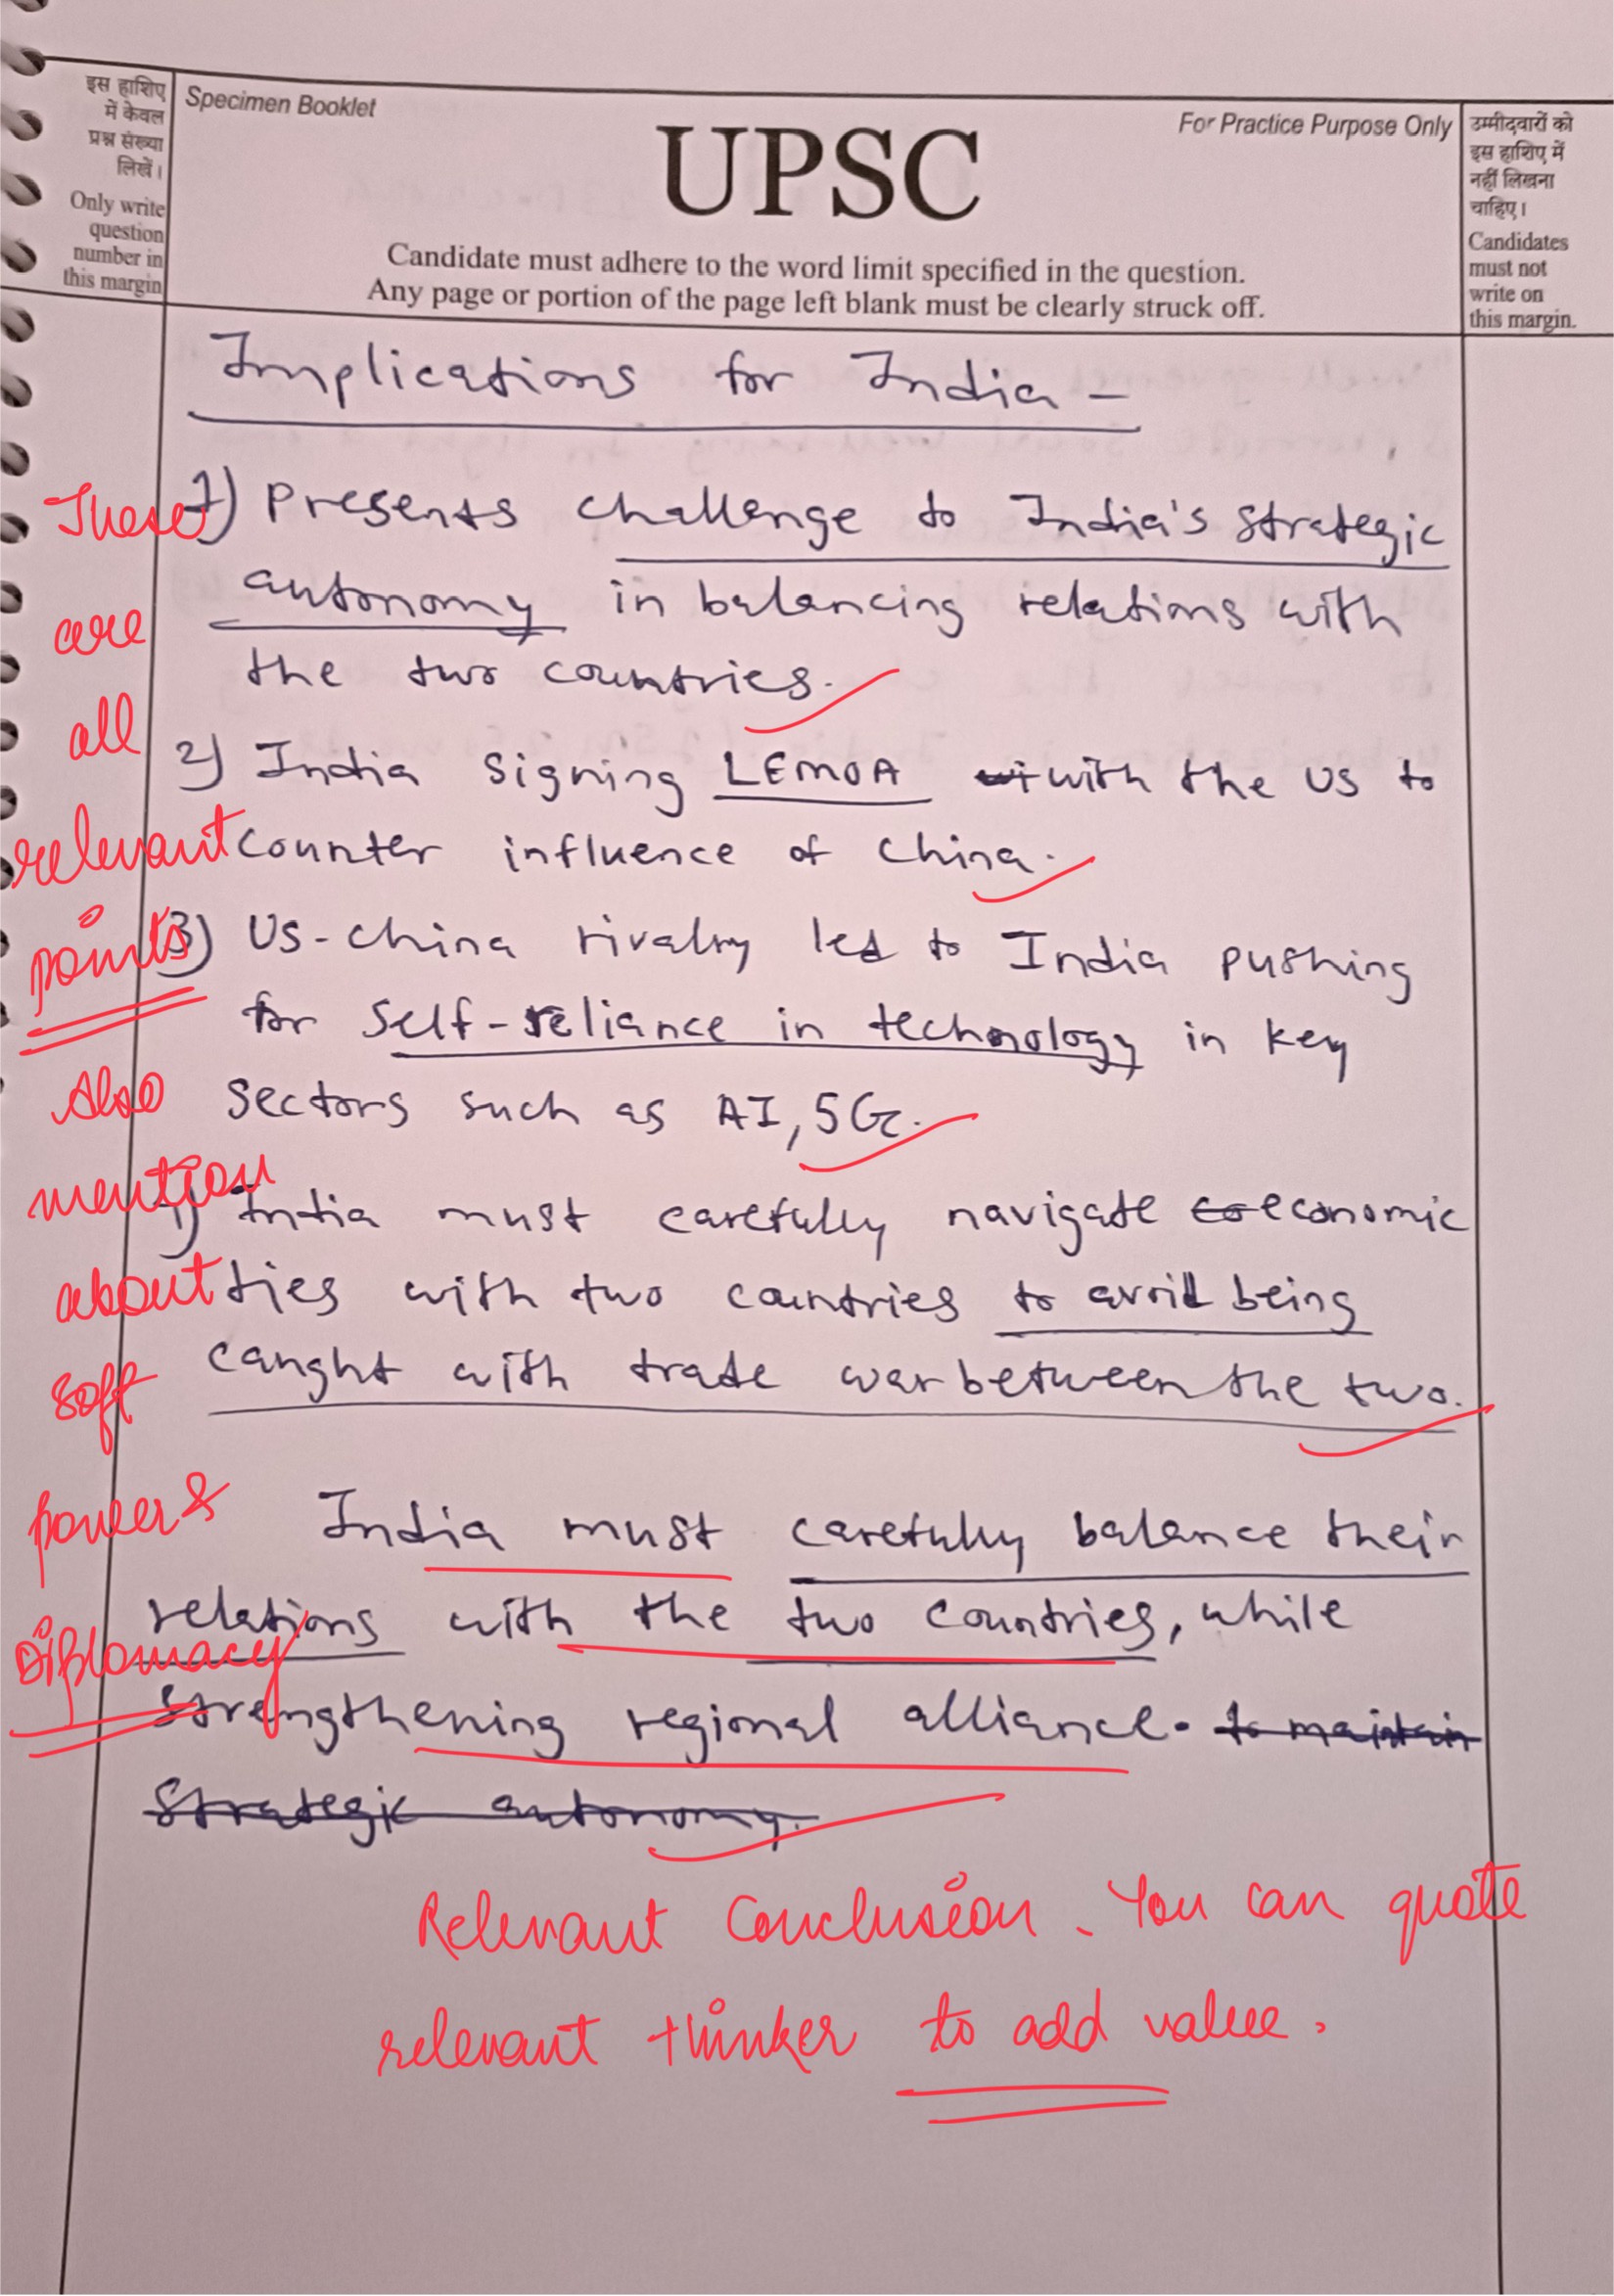 इस हाशिए
में केवल
प्रश्न संख्या
लिखें।
Only write
question
number in
this margin
Specimen Booklet
For Practice Purpose Only
UPSC
Candidate must adhere to the word limit specified in the question.
Any page or portion of the page left blank must be clearly struck off.
उम्मीदवारों को
इस हाशिए में
नहीं लिखना
चाहिए।
Candidates
must not
write on
this margin.
Implications for India -
1) Presents challenge to India's strategic
autonomy in balancing relations with
the two countries.
2) India signing LEMOA with the US to
counter influence of China.
3) US-China rivalry led to India pushing
for self-reliance in technology in key
sectors such as AI, 5G.
1) India must carefully navigate economic
ties with two countries to avoid being
caught with trade war between the two.
India must carefully balance their
relations with the two countries, while
strengthening regional alliance. to maintain
strategic autonomy.
These
are
all
relevant
points
Also
mention
about
soft
power &
Diplomacy
Relevant Conclusion. You can quote
relevant thinker to add value.